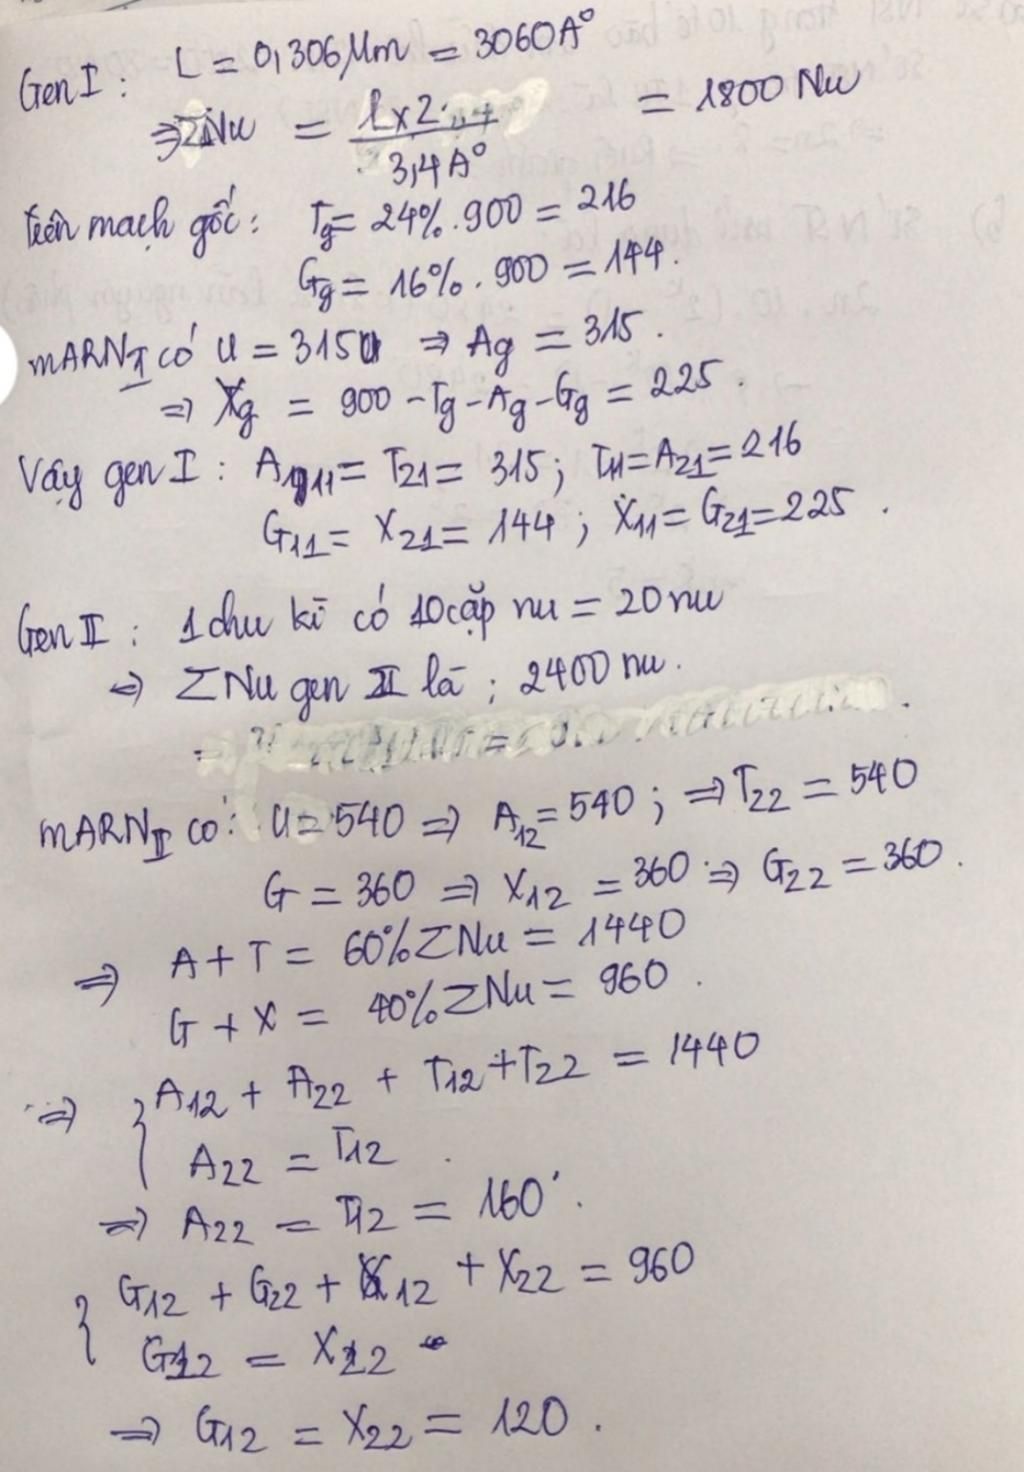 Gen I : L = 0,306 Mm = 3060A°
⇒ ΣNu = l x 2 / 3,4A° = 1800 Nu
Trên mạch gốc : Tg = 24% . 900 = 216
Gg = 16% . 900 = 144.
mARN I có U = 315 ⇒ Ag = 315 .
⇒ Xg = 900 - Tg - Ag - Gg = 225 .
Vậy gen I : A11 = T21 = 315 ; T11 = A21 = 216
G11 = X21 = 144 ; X11 = G21 = 225 .
Gen II : 1 chu kì có 10 cặp nu = 20 nu
⇒ ΣNu gen II là : 2400 nu .
mARN II có : U = 540 ⇒ A12 = 540 ; ⇒ T22 = 540
G = 360 ⇒ X12 = 360 ⇒ G22 = 360 .
⇒ A + T = 60% ΣNu = 1440
G + X = 40% ΣNu = 960 .
⇒ { A12 + A22 + T12 + T22 = 1440
A22 = T12 .
⇒ A22 = T12 = 160 .
{ G12 + G22 + X12 + X22 = 960
G12 = X22
⇒ G12 = X22 = 120 .